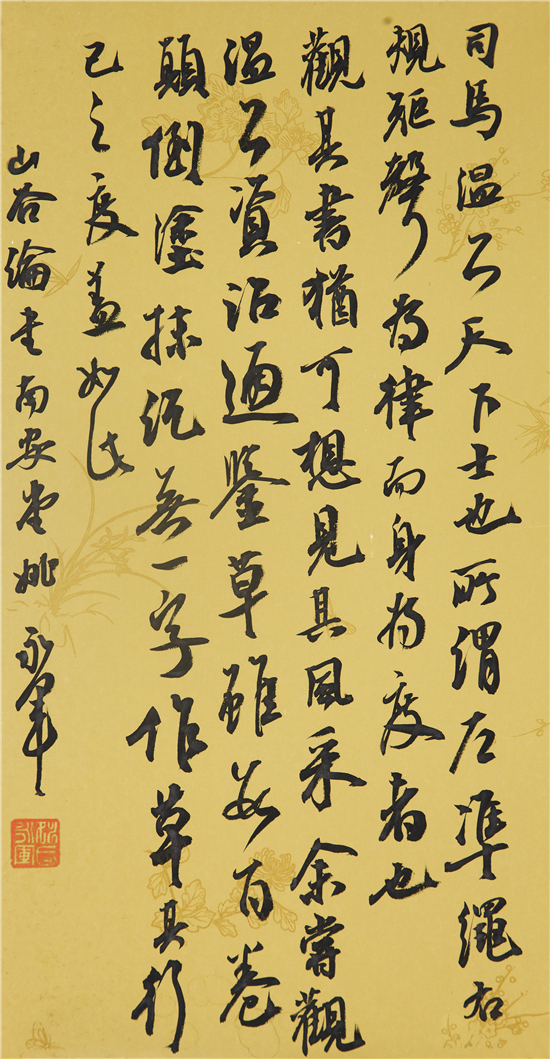 司馬温公天下士也所謂左準繩右
規矩聲為律而身為度者也
觀其書猶可想見其風采余嘗觀
温公資治通鑒草雖數百卷
顛倒塗抹訖無一字作草其行
己之度蓋如此
山谷論書南堂姚永軍